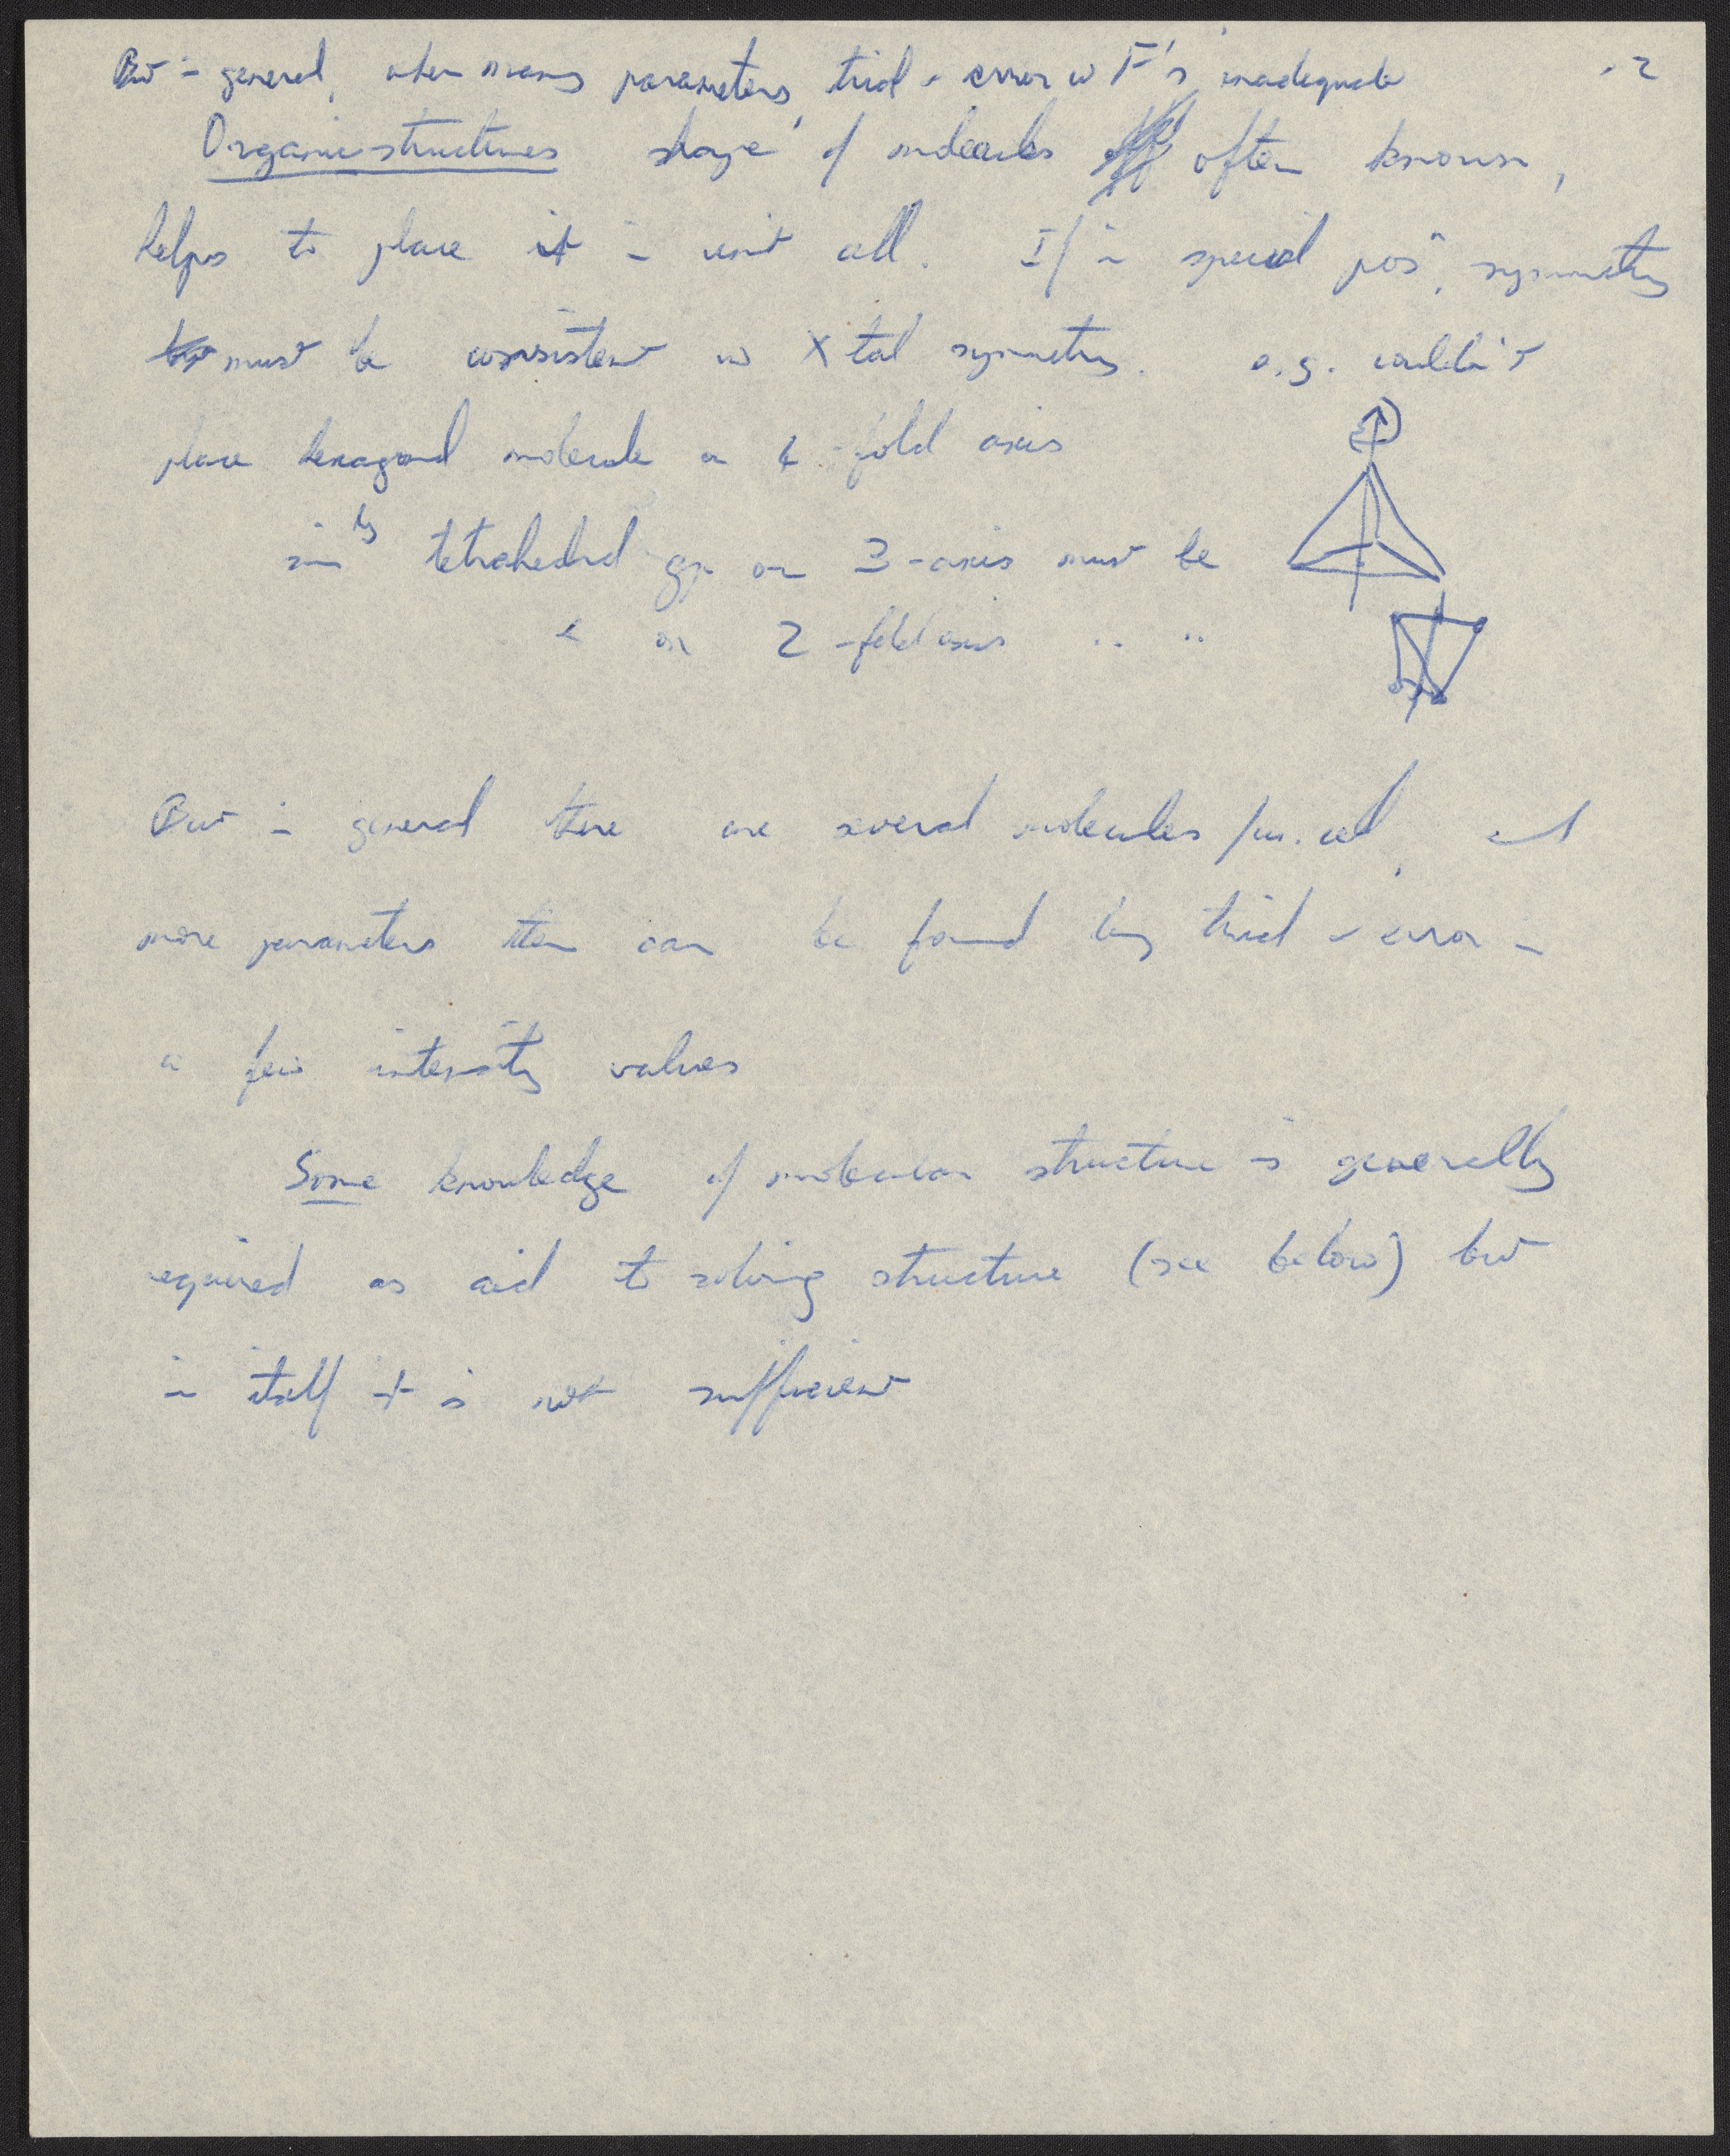 But in general, when many parameters, trial & error w F's inadequate
.2
Organic structures shape of molecules often known,
helps to place it in unit cell. If in special posn, symmetry
must be consistent w Xtal symmetry. e.g. couldn't
place hexagonal molecule on 4-fold axis
simly tetrahedral gp on 3-axis must be
& on 2-fold axis " "
But in general there are several molecules/un. cell, and
more parameters than can be found by trial & error in
a few intensity values
Some knowledge of molecular structure is generally
required as aid to solving structure (see below) but
in itself it is not sufficient